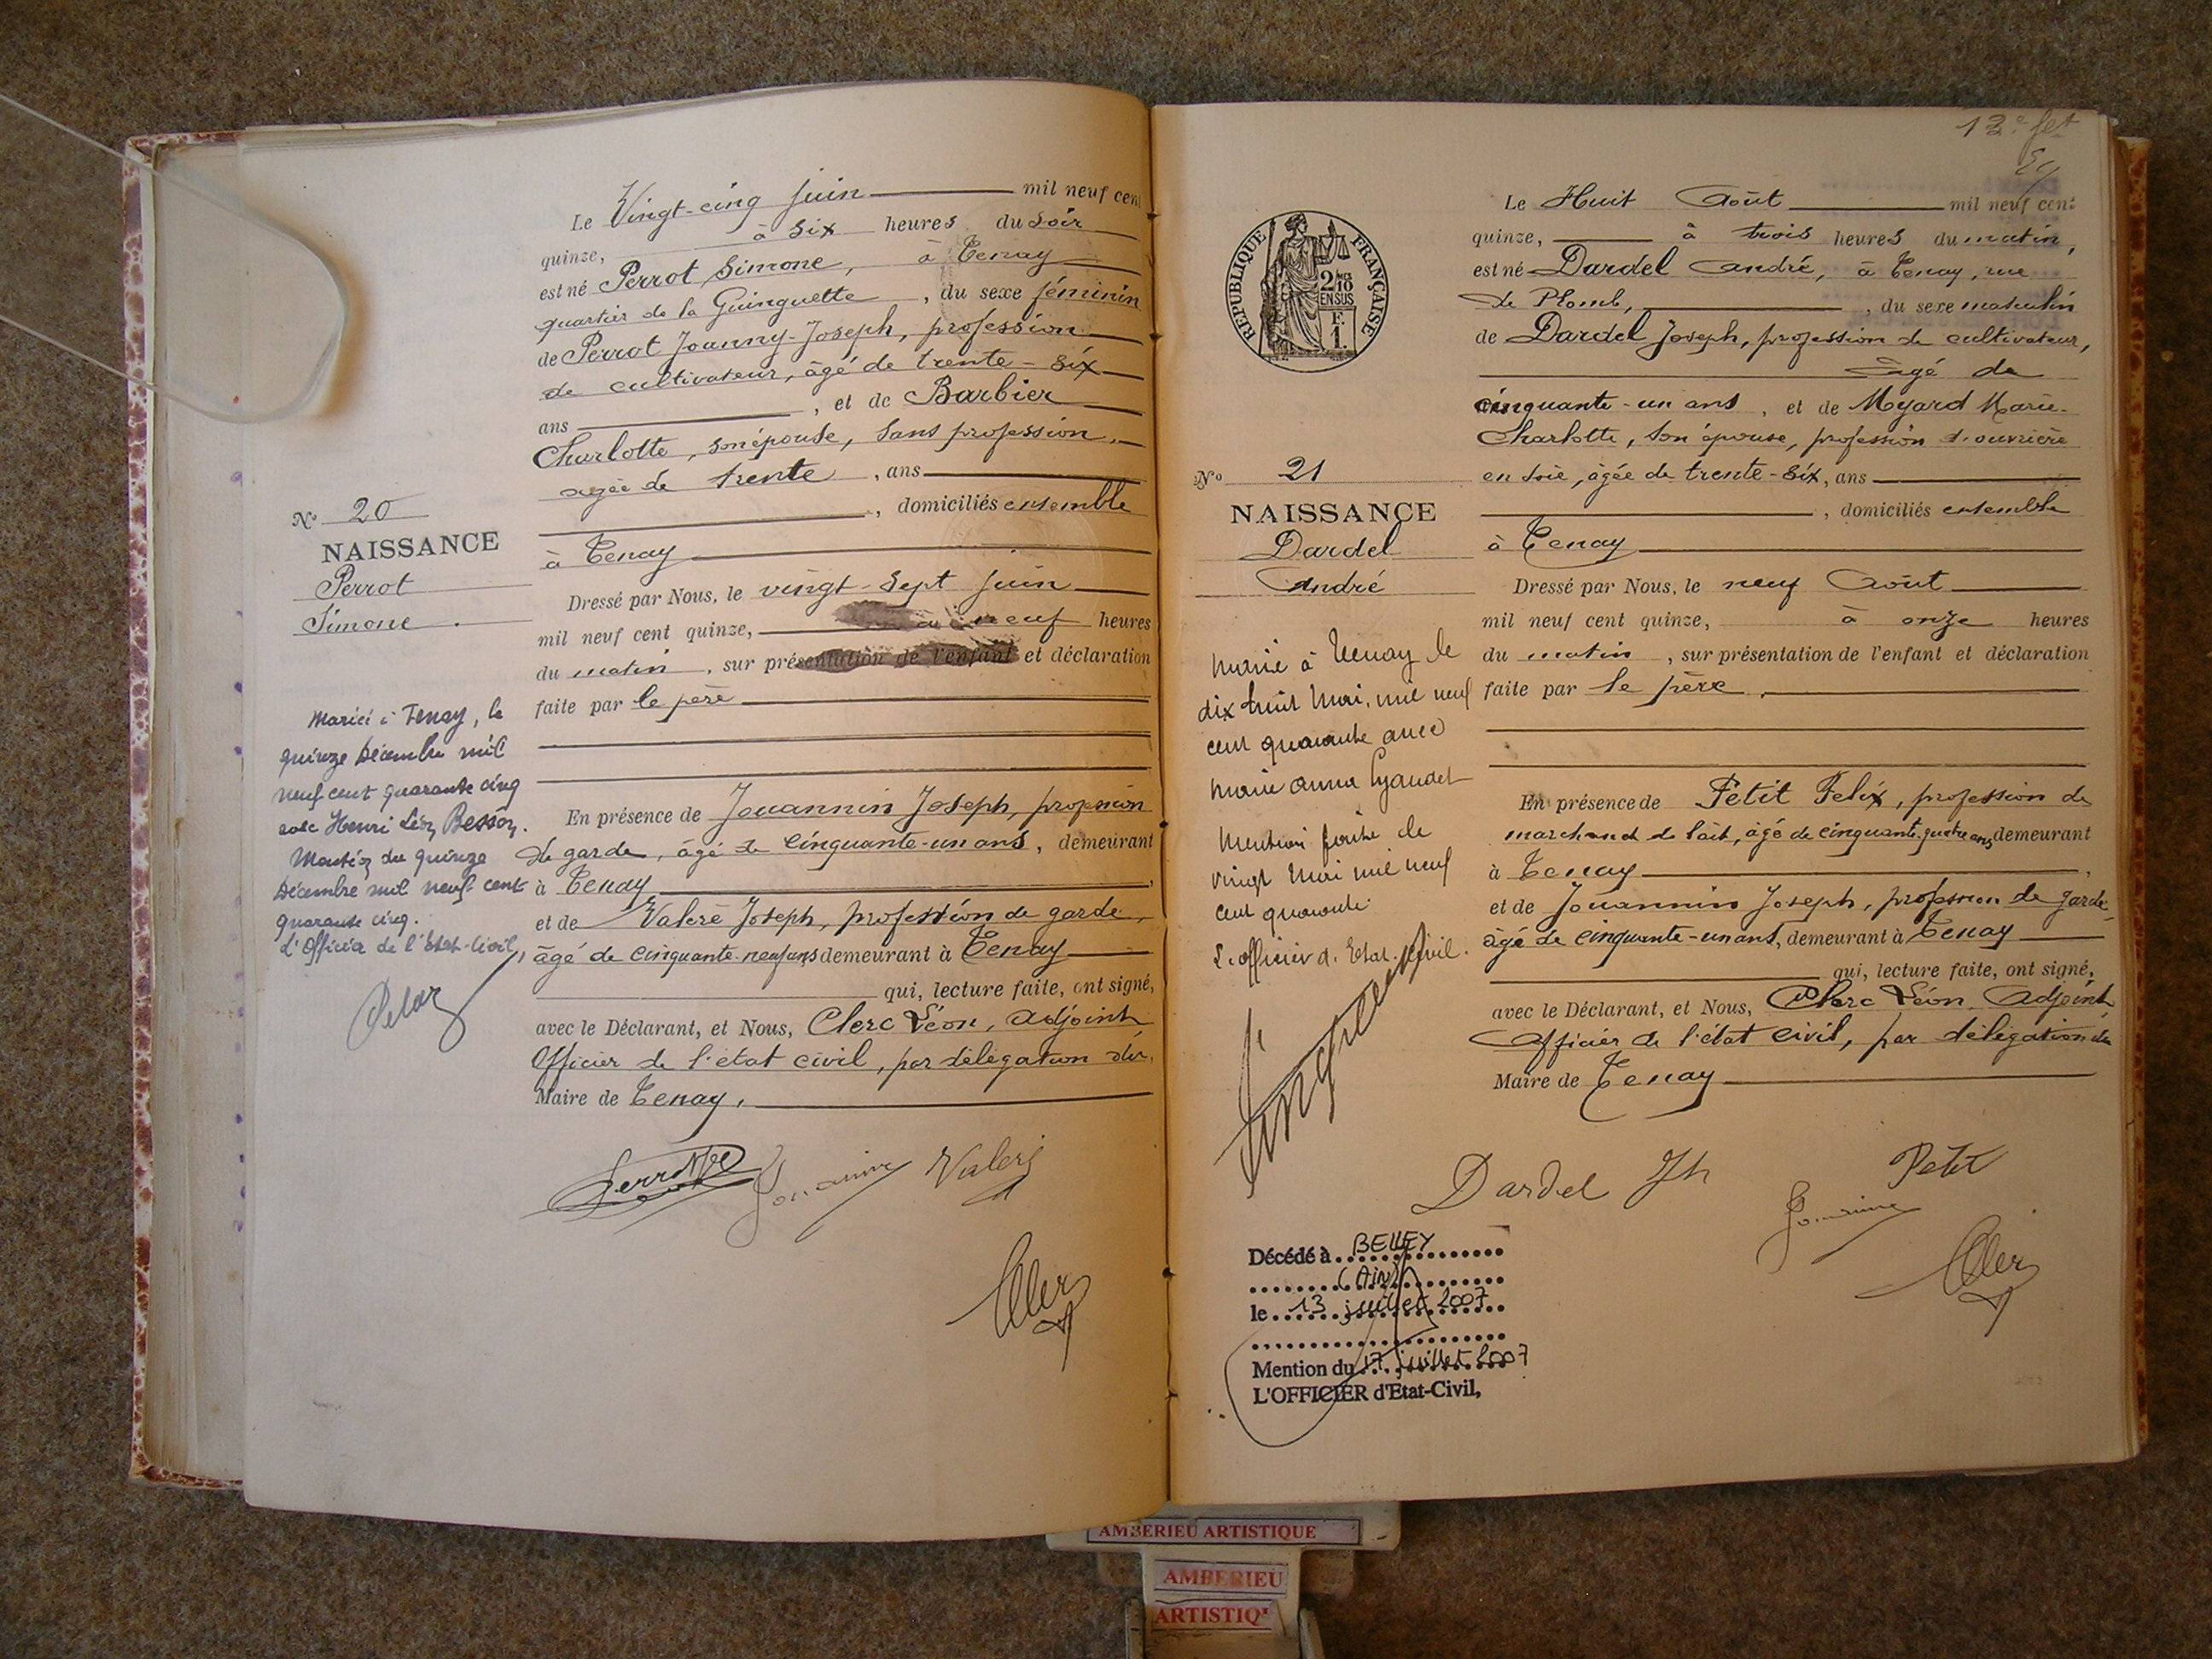 Le Vingt-cinq juin mil neuf cent
quinze, à six heures du soir
est né Perrot Simone, à Tenay
quartier de la Guinguette, du sexe féminin
de Perrot Joanny-Joseph, profession
de cultivateur, âgé de trente-six
ans, et de Barbier
Charlotte, son épouse, sans profession,
agée de trente, ans
, domiciliés ensemble
à Tenay
N° 20
NAISSANCE
Perrot
Simone.
Dressé par Nous, le vingt-sept juin
mil neuf cent quinze, à neuf heures
du matin, sur présentation de l'enfant et déclaration
faite par le père
Mariée à Tenay, le
quinze Décembre mil
neuf cent quarante cinq
avec Henri Léon Besson.
Mention du quinze
Décembre mil neuf cent
quarante cinq.
L'Officier de l'Etat-Civil,
En présence de Jouannin Joseph, profession
de garde, âgé de cinquante-un ans, demeurant
à Tenay,
et de Valeré Joseph, profession de garde,
âgé de cinquante-neuf ans demeurant à Tenay
qui, lecture faite, ont signé,
avec le Déclarant, et Nous, Clerc Léon, adjoint
Officier de l'état civil, par délégation du
Maire de Tenay.
Jouannin Valeré
Clerc
12e fet
REPUBLIQUE FRANÇAISE
2/10 EN SUS
F.
1.
Le Huit Août mil neuf cent
quinze, à trois heures du matin,
est né Dardel André, à Tenay, rue
de Plomb, du sexe masculin
de Dardel Joseph, profession de cultivateur,
âgé de
cinquante-un ans, et de Meyard Marie-
Charlotte, son épouse, profession d'ouvrière
en soie, âgée de trente-six, ans
, domiciliés ensemble
à Tenay
N° 21
NAISSANCE
Dardel
André
Dressé par Nous, le neuf Août
mil neuf cent quinze, à onze heures
du matin, sur présentation de l'enfant et déclaration
faite par le père,
Marié à Tenay le
dix huit Mai, mil neuf
cent quarante avec
Marie Anna
Mention faite le
vingt Mai mil neuf
cent quarante
L'officier d'Etat-Civil.
En présence de Petit Felix, profession de
marchand de lait, âgé de cinquante-quatre ans, demeurant
à Tenay,
et de Jouannin Joseph, profession de garde,
âgé de cinquante-un ans, demeurant à Tenay
qui, lecture faite, ont signé,
avec le Déclarant, et Nous, Clerc Léon, Adjoint
Officier de l'état civil, par délégation du
Maire de Tenay
Dardel Jh Petit
Jouannin
Clerc
Décédé à BELLEY
(AIN)
le 13 juillet 2007
Mention du 17 juillet 2007
L'OFFICIER d'Etat-Civil,
AMBERIEU ARTISTIQUE
AMBERIEU
ARTISTIQ